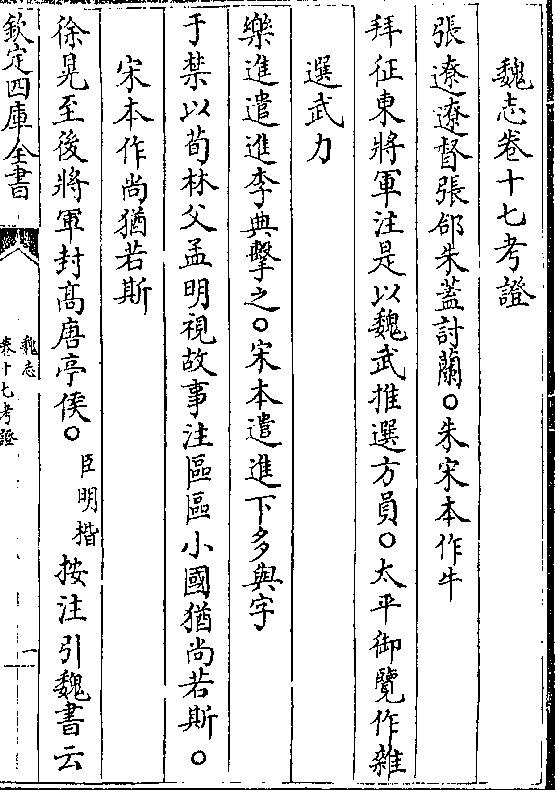 魏志卷十七考證
張遼遼督張郃朱蓋討蘭○朱宋本作牛
拜征東將軍注是以魏武推選方員○太平御覽作雜
選武力
樂進遣進李典擊之○宋本遣進下多與字
于禁以荀林父孟明視故事注區區小國猶尚若斯○
宋本作尚猶若斯
徐晃至後將軍封髙唐亭侯○臣明楷按注引魏書云
欽定四庫全書
魏志
卷十七考證
一